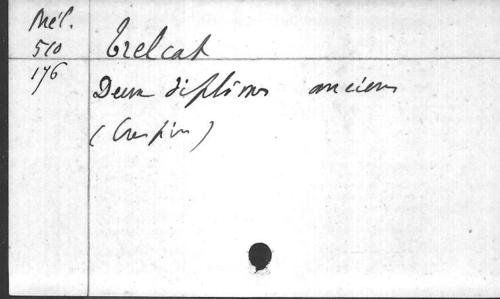 Mél.
510
176
Trelcat
Deux diplômes anciens
(Crespin)